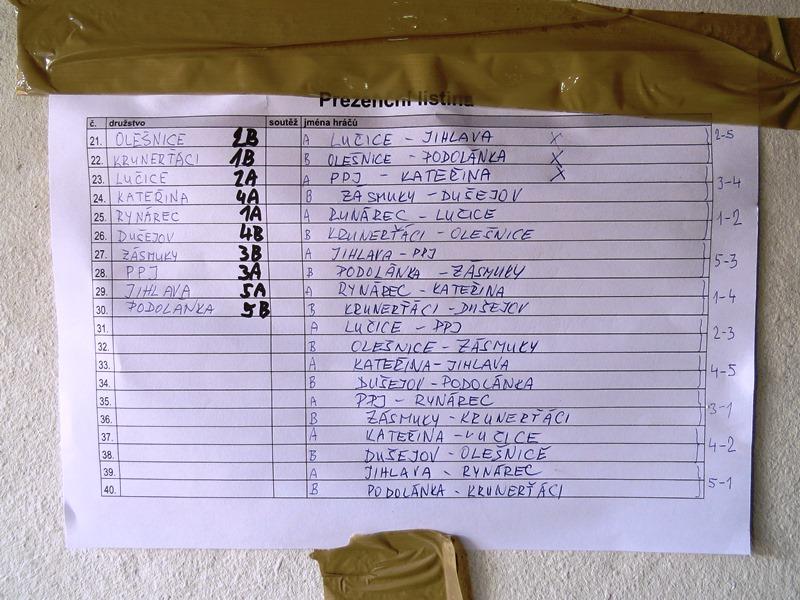 Prezenční listina
č. družstvo soutěž jména hráčů
21. OLEŠNICE 2B A LUČICE - JIHLAVA X 2-5
22. KRUNERŤÁCI 1B B OLEŠNICE - PODOLÁNKA X
23. LUČICE 2A A PPJ - KATEŘINA X 3-4
24. KATEŘINA 4A B ZÁSMUKY - DUŠEJOV
25. RYNÁREC 1A A RYNÁREC - LUČICE 1-2
26. DUŠEJOV 4B B KRUNERŤÁCI - OLEŠNICE
27. ZÁSMUKY 3B A JIHLAVA - PPJ 5-3
28. PPJ 3A B PODOLÁNKA - ZÁSMUKY
29. JIHLAVA 5A A RYNÁREC - KATEŘINA 1-4
30. PODOLÁNKA 5B B KRUNERŤÁCI - DUŠEJOV
31. A LUČICE - PPJ 2-3
32. B OLEŠNICE - ZÁSMUKY
33. A KATEŘINA - JIHLAVA 4-5
34. B DUŠEJOV - PODOLÁNKA
35. A PPJ - RYNÁREC 3-1
36. B ZÁSMUKY - KRUNERŤÁCI
37. A KATEŘINA - LUČICE 4-2
38. B DUŠEJOV - OLEŠNICE
39. A JIHLAVA - RYNÁREC 5-1
40. B PODOLÁNKA - KRUNERŤÁCI